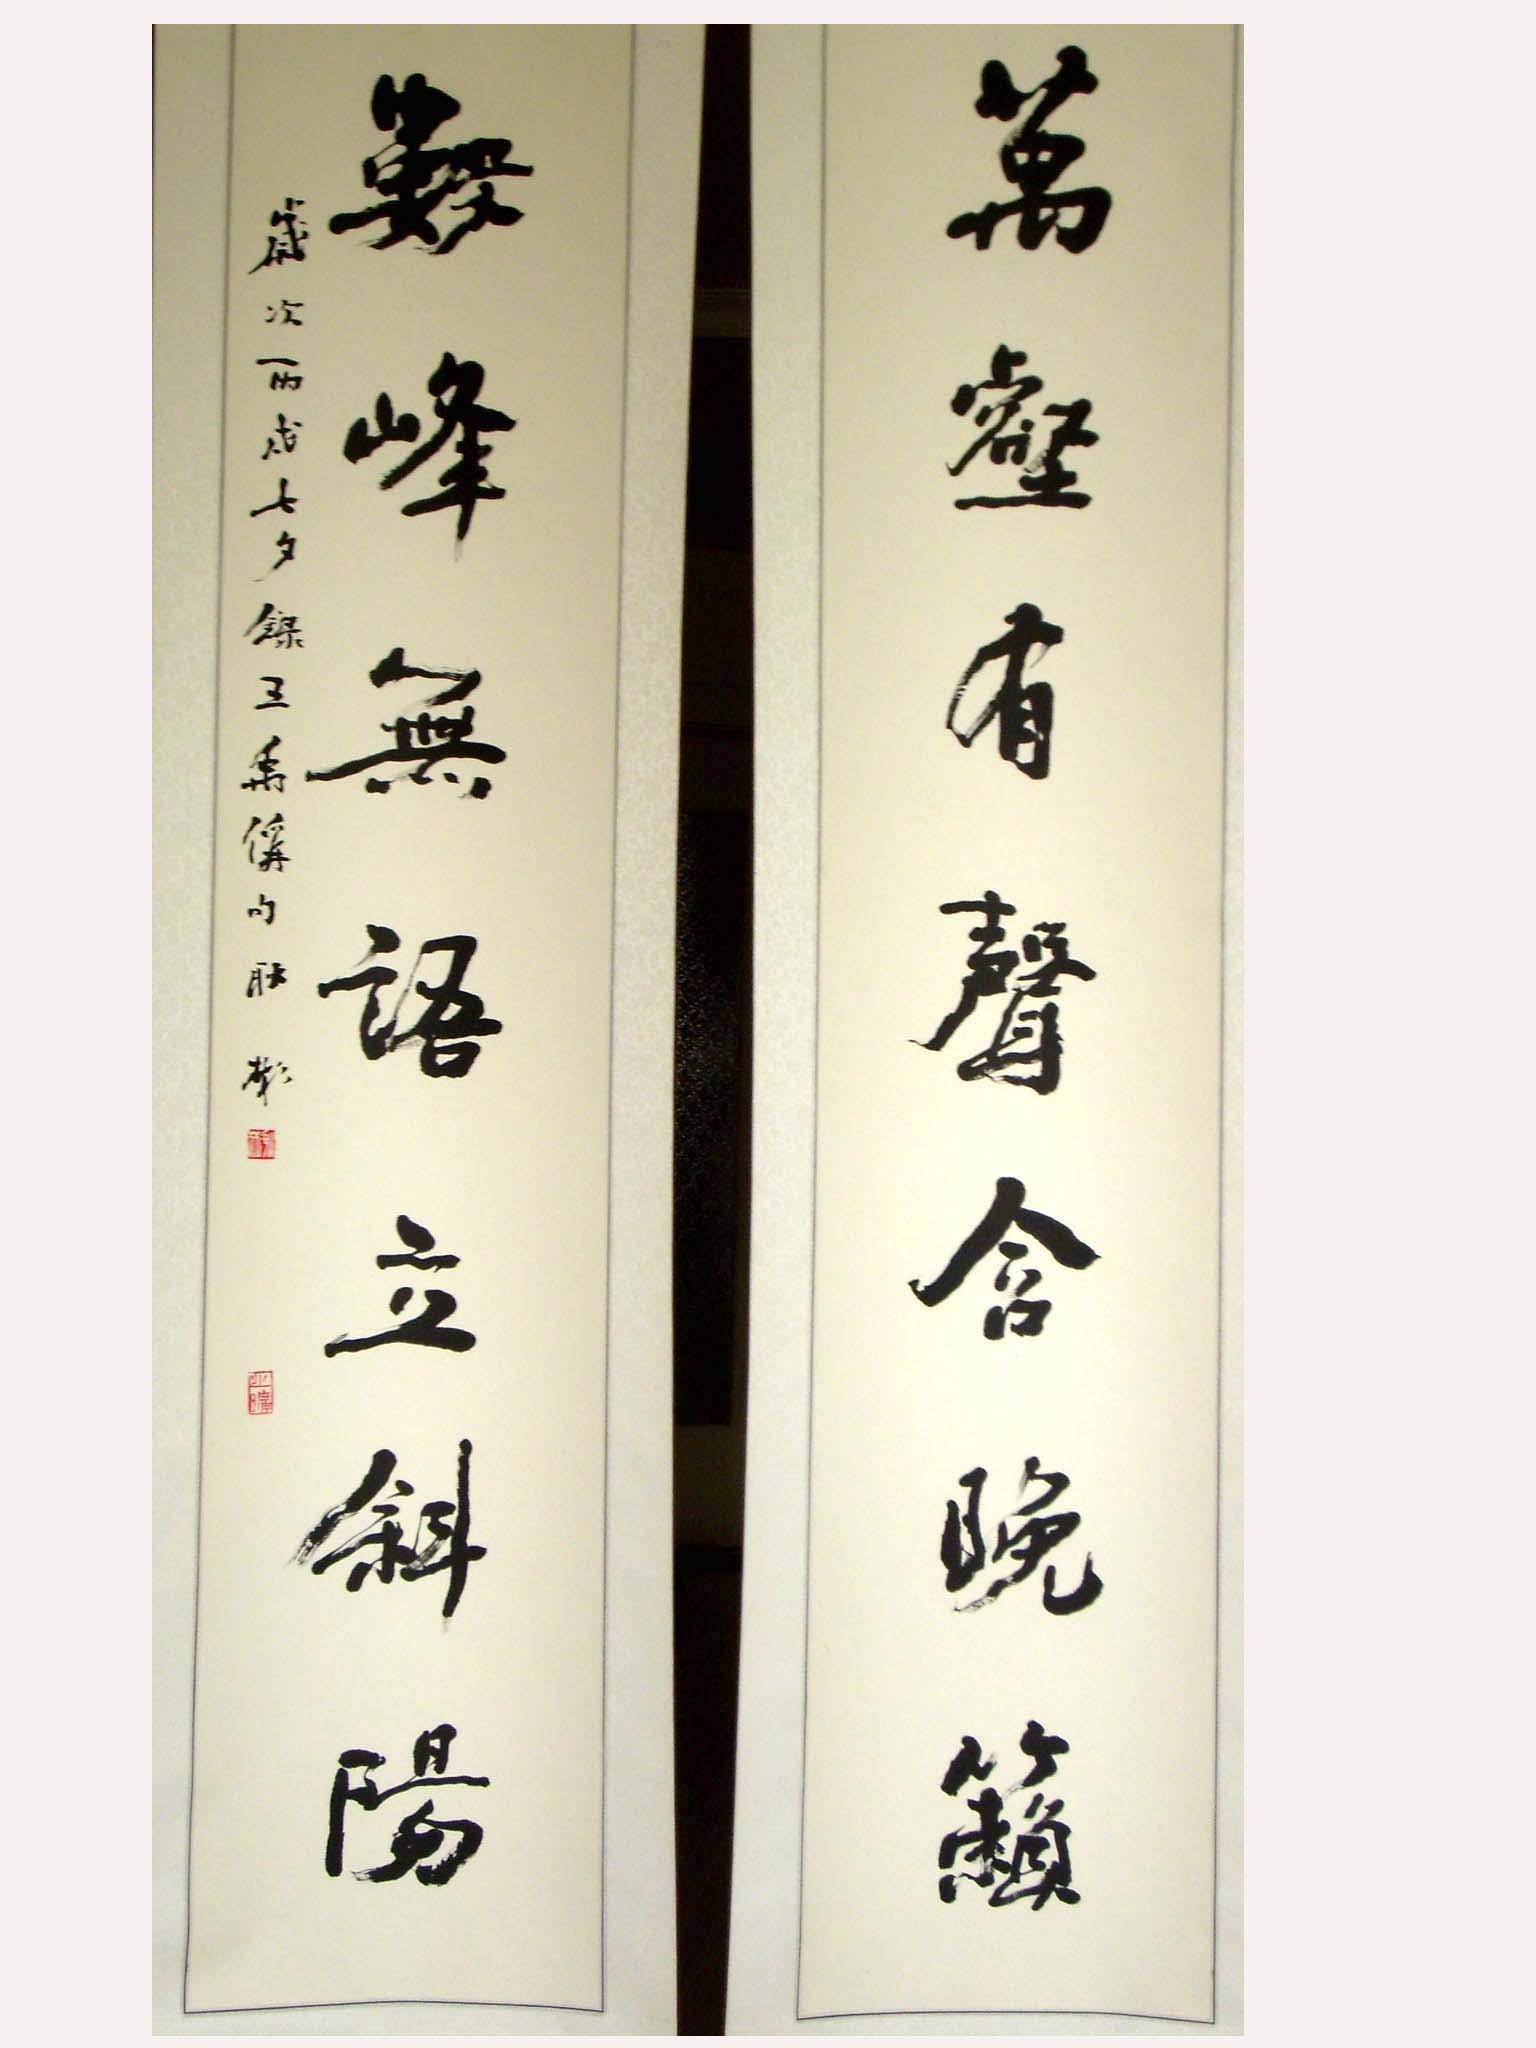 萬壑有聲含晚籟
數峰無語立斜陽
歲次丙戌七夕錄王禹偁句 耿彬